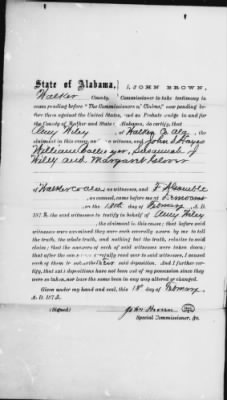 State of Alabama, } I, JOHN BROWN,
Walker County. Commissioner to take testimony in
cases pending before "The Commissioners of Claims," now pending be-
fore them against the United States, and as Probate Judge in and for
the County of Walker and State of Alabama, do certify, that
Amy Wiley, of Walker Co Ala
the claimant in this case, and John S Hayes
William
Wiley and Margaret
of Walker co ala as witnesses, and F A Gamble
as counsel, came before me at
on the 18th day of February A. D.
1873, the said witnesses to testify in behalf of Amy Wiley
the claimant in this case; that before said
witnesses were examined they were each severally sworn by me to tell
the truth, the whole truth, and nothing but the truth, relative to said
claim; that the answers of each of said witnesses were taken down;
that after the same was carefully read over to said witnesses, I caused
each of them to subscribe said deposition. And I further cer-
tify, that said depositions have not been out of my possession since they
were so taken, nor have the same been in any way altered or changed.
Given under my hand and seal, this 18th day of February
A. D. 1873.
(Signed) John Brown
Special Commissioner, &c.